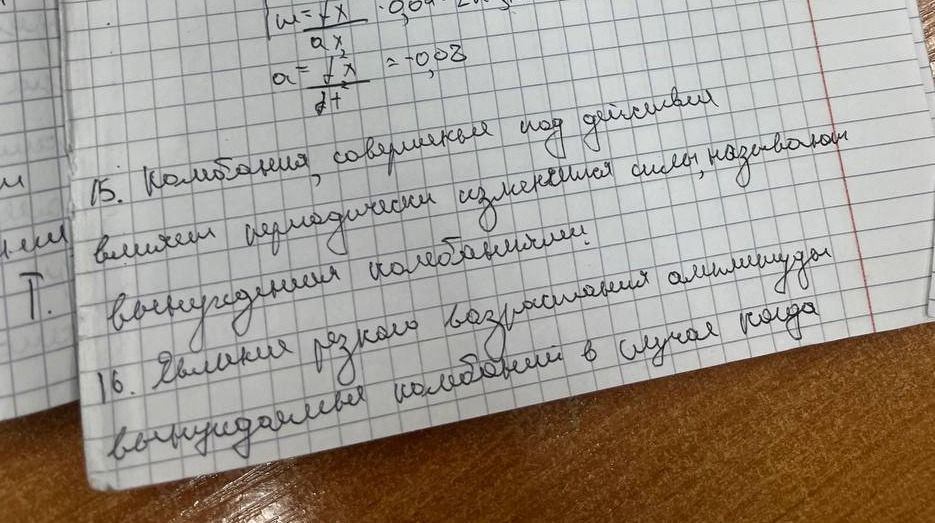 dx
a = d²x / dt² = -0,08
15. Колебания, совершенные под действием
внешней периодически изменения силы, называют
вынужденными колебаниями.
16. Явление резкого возрастания амплитуды
вынуждаемых колебаний в случае когда
T.